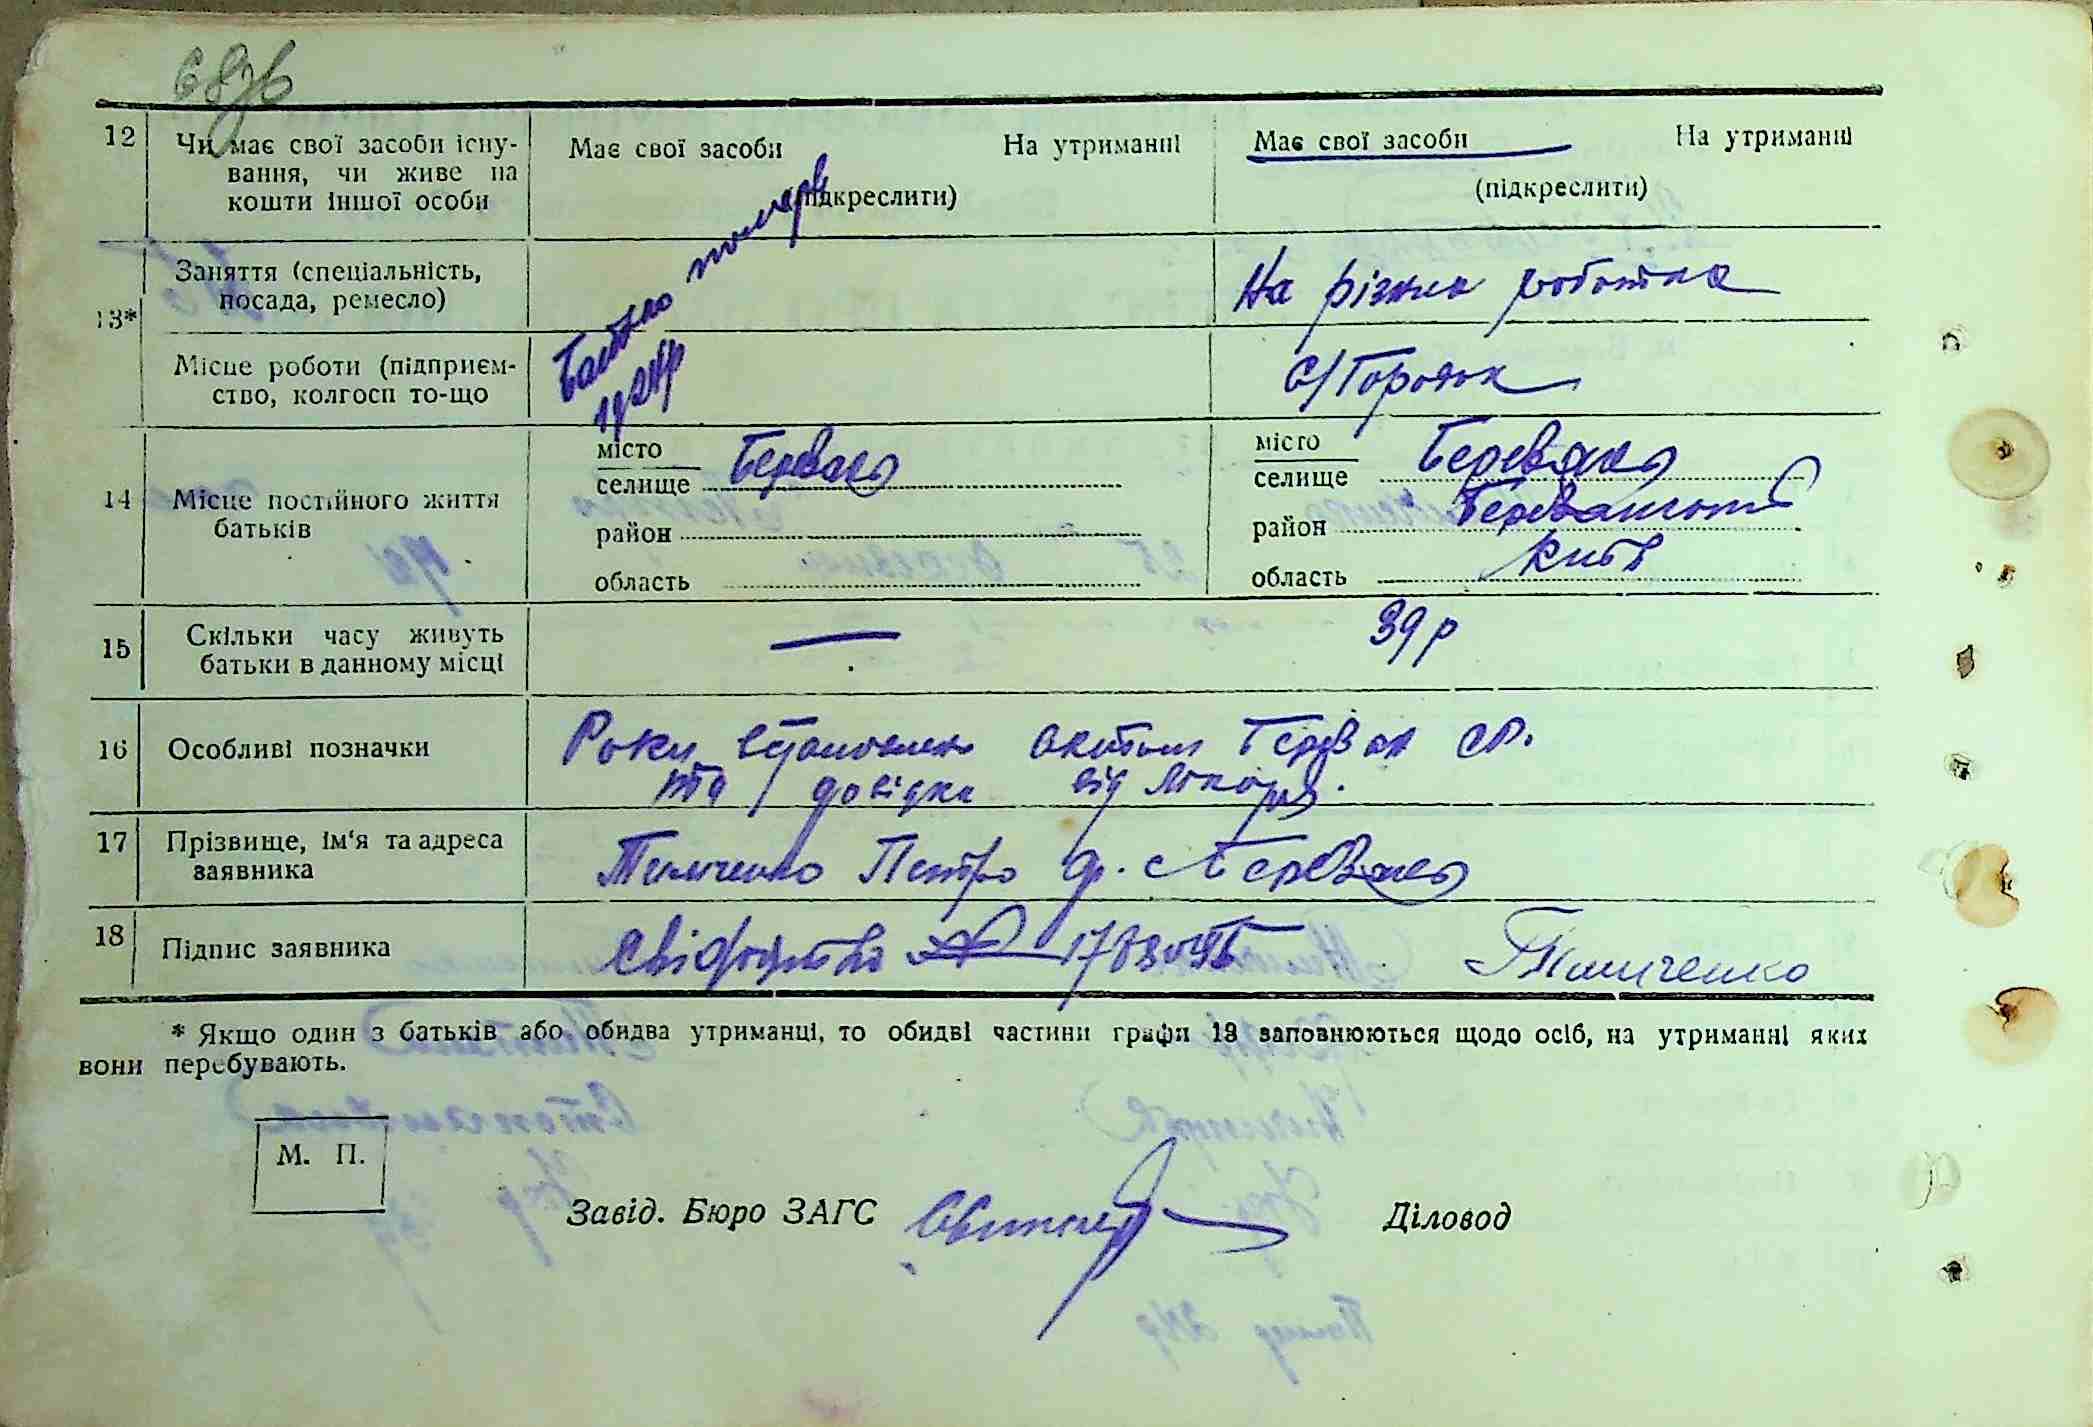 687б
12 Чи має свої засоби існу-
вання, чи живе на
кошти іншої особи
Має свої засоби На утриманні
(підкреслити)
Має свої засоби На утриманні
(підкреслити)
13* Заняття (спеціальність,
посада, ремесло)
Батько помер в
1924р
На різних роботах
Місце роботи (підприєм-
ство, колгосп то-що
14 Місце постійного життя
батьків
місто
селище
район
область
місто
селище
район
область Київ
15 Скільки часу живуть
батьки в данному місці
— 39 р
16 Особливі позначки
Роки встановлено актом
та довідка від лікаря.
17 Прізвище, ім'я та адреса
заявника
Тимченко Петро Ф. с
18 Підпис заявника
Свідоцтво № Тимченко
* Якщо один з батьків або обидва утриманці, то обидві частини графи 13 заповнюються щодо осіб, на утриманні яких
вони перебувають.
М. П.
Завід. Бюро ЗАГС Діловод